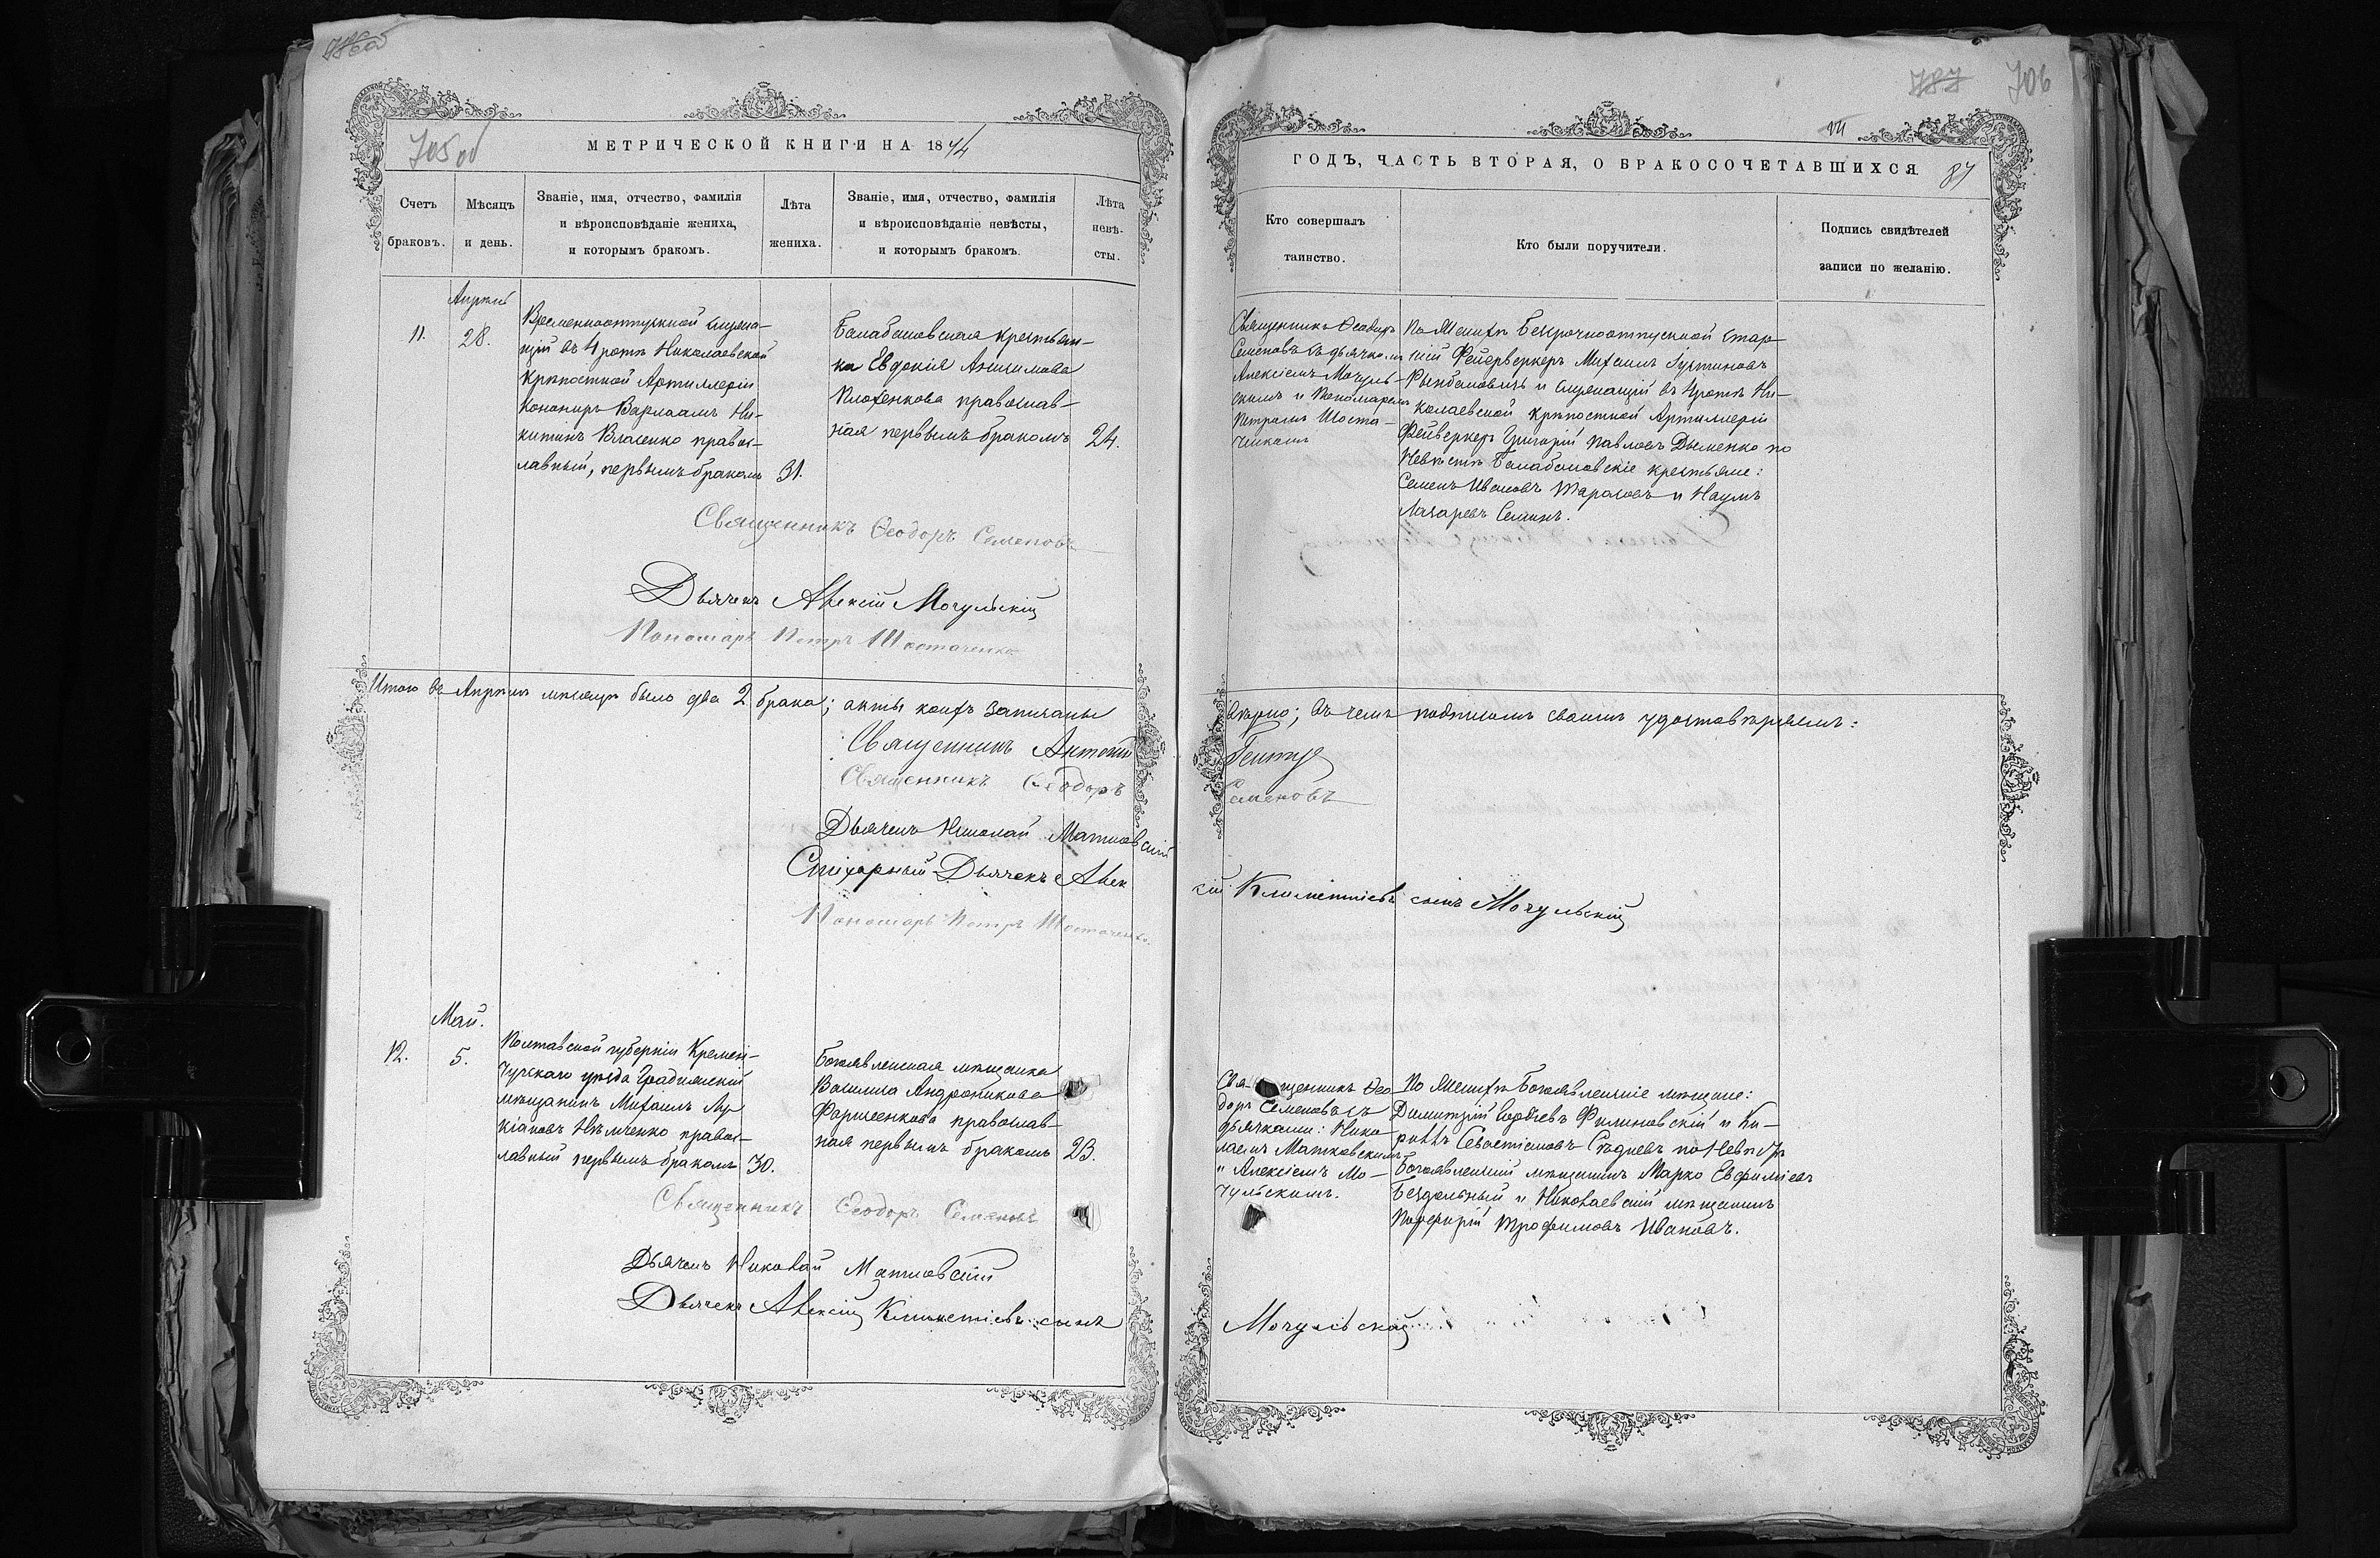 705 об
МЕТРИЧЕСКОЙ КНИГИ НА 1874
Счетъ браковъ.
Мѣсяцъ и день.
Званіе, имя, отчество, фамилія
и вѣроисповѣданіе жениха,
и которымъ бракомъ.
Лѣта жениха.
Званіе, имя, отчество, фамилія
и вѣроисповѣданіе невѣсты,
и которымъ бракомъ.
Лѣта невѣ-
сты.
11.
Апрѣль
28.
Временноотпускной служа-
щій въ 4 ротѣ Николаевской
крѣпостной Артиллеріи
Канониръ Варлаамъ Ни-
китинъ Власенко правос-
лавный, первымъ бракомъ
31.
Балабановская крестьян-
ка Евдокія Анисимова
Плохенкова православ-
ная первымъ бракомъ
24.
Священникъ Ѳеодоръ Семеновъ
Дьячекъ Алексій Мочульскій
Пономарь Петръ Шостаченко
Итого въ Апрѣлѣ мѣсяцѣ было два 2 брака; акты коихъ записаны
Священникъ Антоній
Священникъ Ѳеодоръ
Дьячекъ Николай Матковскій
Стихарный Дьячекъ Алек
Пономарь Петръ Шостаченко.
Май.
12.
5.
Полтавской губерніи Кремен-
чугскаго уѣзда Градижскій
мѣщанинъ Михаилъ Лу
кіановъ Нѣмченко правос-
лавный первымъ бракомъ
30.
Богоявленская мѣщанка
Василиса Андроникова
православ-
ная первымъ бракомъ
23.
Священникъ Ѳеодоръ Семеновъ
Дьячекъ Николай Матковскій
Дьячекъ Алексій Климентіевъ сынъ
787 706
ГОДЪ, ЧАСТЬ ВТОРАЯ, О БРАКОСОЧЕТАВШИХСЯ
87
Кто совершалъ
таинство.
Кто были поручители.
Подпись свидѣтелей
записи по желанію.
Священникъ Ѳеодоръ
Семеновъ съ дьячкомъ
Алексіемъ Мочуль-
скимъ и Пономаремъ
Петромъ Шоста-
ченкомъ
По Женихѣ Безсрочноотпускной Стар-
шій Фейерверкеръ Михаилъ
и служащій въ 4 ротѣ Ни-
колаевской крѣпостной Артиллеріи
Фейверкеръ Григорій Павловъ Дыменко по
Невѣстѣ Балабановскіе крестьяне:
Семенъ Ивановъ Тарасовъ и Наумъ
Лазаревъ Семинъ.
вѣрно; въ чемъ подписомъ своимъ удостовѣряемъ:
Гентуя
Семеновъ
сій Климентіевъ сынъ Мочульскій
Священникъ Ѳео-
доръ Семеновъ съ
дьячками: Нико-
лаемъ Матковскимъ
и Алексіемъ Мо-
чульскимъ.
По Женихѣ Богоявленскіе мѣщане:
Димитрій Филиновскій и Ки-
риллъ Севастіановъ по Невѣстѣ
Богоявленскій мѣщанинъ Марко Евфиміевъ
Бездольный и Николаевскій мѣщанинъ
Порфирій Трофимовъ Ивановъ.
Мочульскій